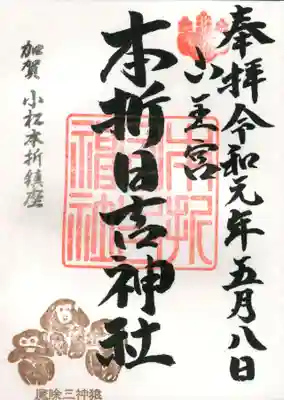 奉拝 令和元年五月八日
山王宮
本折日吉神社
加賀 小松本折鎮座
本折
神社
魔除三神猿